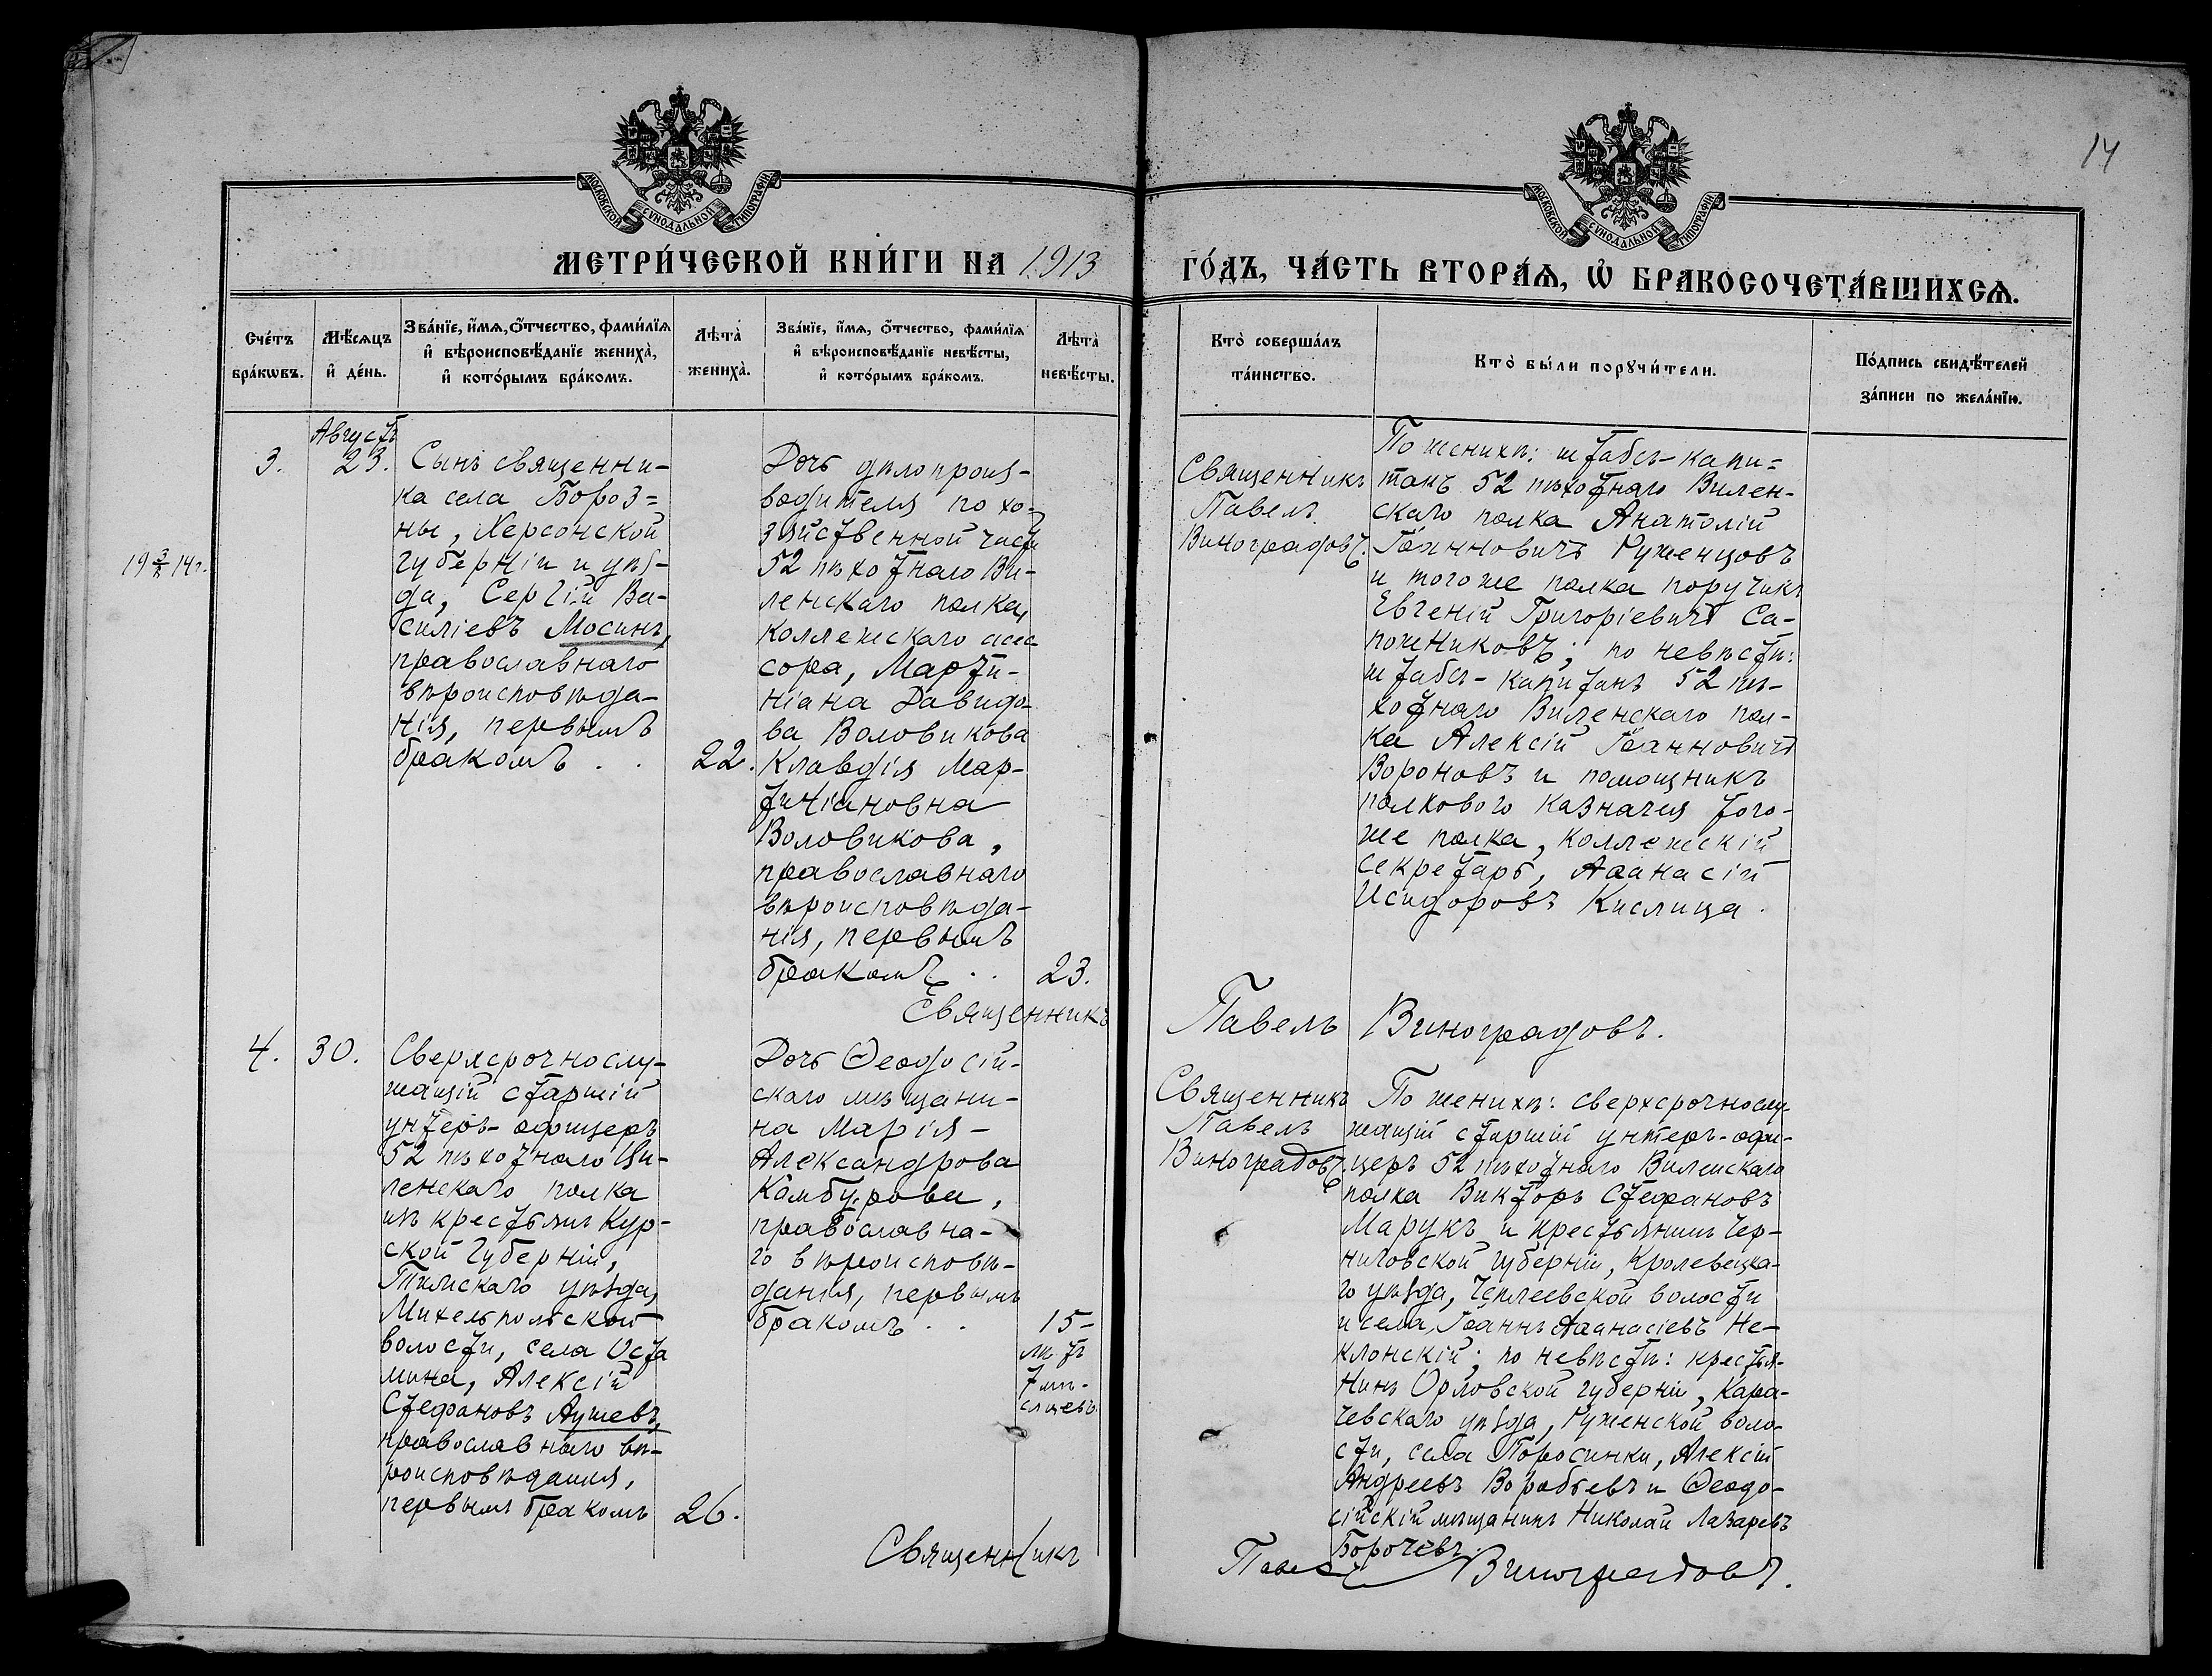 14
МОСКОВСКОЙ СѴНОДАЛЬНОЙ ТИПОГРАФІИ
МОСКОВСКОЙ СѴНОДАЛЬНОЙ ТИПОГРАФІИ
МЕТРИ́ЧЕСКОЙ КНИ́ГИ НА 1913
ГО́ДЪ, ЧА́СТЬ ВТОРА́Ѧ, Ѽ БРАКОСОЧЕТА́ВШИХСѦ.
Сче́тъ
бра́кѡвъ.
Мѣ́сѧцъ
и҆ де́нь.
Зва́нїе, и҆́мѧ, ѻ҆́тчество, фами́лїѧ
и҆ вѣроисповѣ́данїе жениха̀,
и҆ кото́рымъ бра́комъ.
Лѣта̀
жениха̀.
Зва́нїе, и҆́мѧ, ѻ҆́тчество, фами́лїѧ
и҆ вѣроисповѣ́данїе невѣ́сты,
и҆ кото́рымъ бра́комъ.
Лѣта̀
невѣ́сты.
Кто̀ соверша́лъ
та́инство.
Кто̀ бы́ли порꙋчи́тели.
По́дпись свидѣ́телей
за́писи по жела́нїю.
3.
Августъ
23.
Сынъ священни-
ка села Бороз=
ны, Херсонской
губерніи и уѣз-
да, Сергій Ва-
силіевъ Мосинъ,
православнаго
вѣроисповѣда-
нія, первымъ
бракомъ . .
22.
Дочь дѣлопроиз-
водителя по хо-
зяйственной части
52 пѣхотнаго Ви-
ленскаго полка,
коллежскаго асес-
сора, Марти-
ніана Давидо-
ва Воловикова
Клавдія Мар-
тиніановна
Воловикова,
православнаго
вѣроисповѣда-
нія, первымъ
бракомъ . .
23.
Священникъ
Павелъ
Виноградовъ.
По женихѣ: штабсъ-капи=
танъ 52 пѣхотнаго Вилен-
скаго полка Анатолій
Іоанновичъ Руженцовъ
и того же полка поручикъ
Евгеній Григоріевичъ Са-
пожниковъ; по невѣстѣ:
штабсъ-капитанъ 52 пѣ-
хотнаго Виленскаго пол-
ка Алексій Іоанновичъ
Вороновъ и помощникъ
полкового казначея того-
же полка, коллежскій
секретарь, Аѳанасій
Исидоровъ Кислица.
Священникъ Павелъ Виноградовъ.
4.
30.
Сверхсрочнослу-
жащій старшій
унтеръ-офицеръ
52 пѣхотнаго Ви-
ленскаго полка
изъ крестьянъ Кур-
ской губерніи,
Тимскаго уѣзда,
Михельпольской
волости, села Оста
мина, Алексій
Стефановъ Аушевъ,
православнаго вѣ-
роисповѣданія,
первымъ бракомъ
26.
Дочь Ѳеодосій-
скаго мѣщани-
на Марія-
Александрова
Камбурова,
православна-
го вѣроисповѣ-
данія, первымъ
бракомъ . .
15-
лѣтъ
7 мѣ-
сяцевъ
Священникъ
Павелъ
Виноградовъ.
По женихѣ: сверхсрочнослу-
жащій старшій унтеръ-офи-
церъ 52 пѣхотнаго Виленскаго
полка Викторъ Стефановъ
Марукъ и крестьянинъ Чер-
ниговской губерніи, Кролевецка-
го уѣзда, Чеплеевской волости
и села, Іоаннъ Аѳанасіевъ Не-
клонскій; по невѣстѣ: крестья-
нинъ Орловской губерніи, Кара-
чевскаго уѣзда, Руженской воло-
сти, села Поросинки, Алексій
Андреевъ Воробьевъ и Ѳеодо-
сійскій мѣщанинъ Николай Лазаревъ
Борочевъ.
Священникъ Павелъ Виноградовъ.